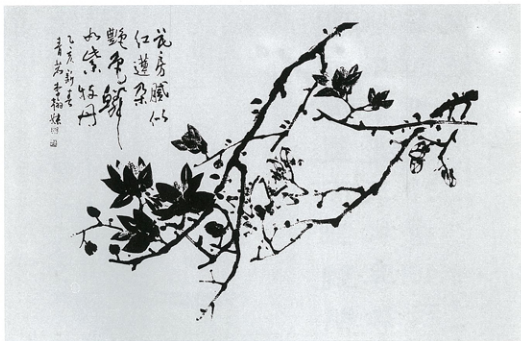 花房膩似
紅蓮朵
艷色鮮
如紫牡丹
乙亥新春
青岩李